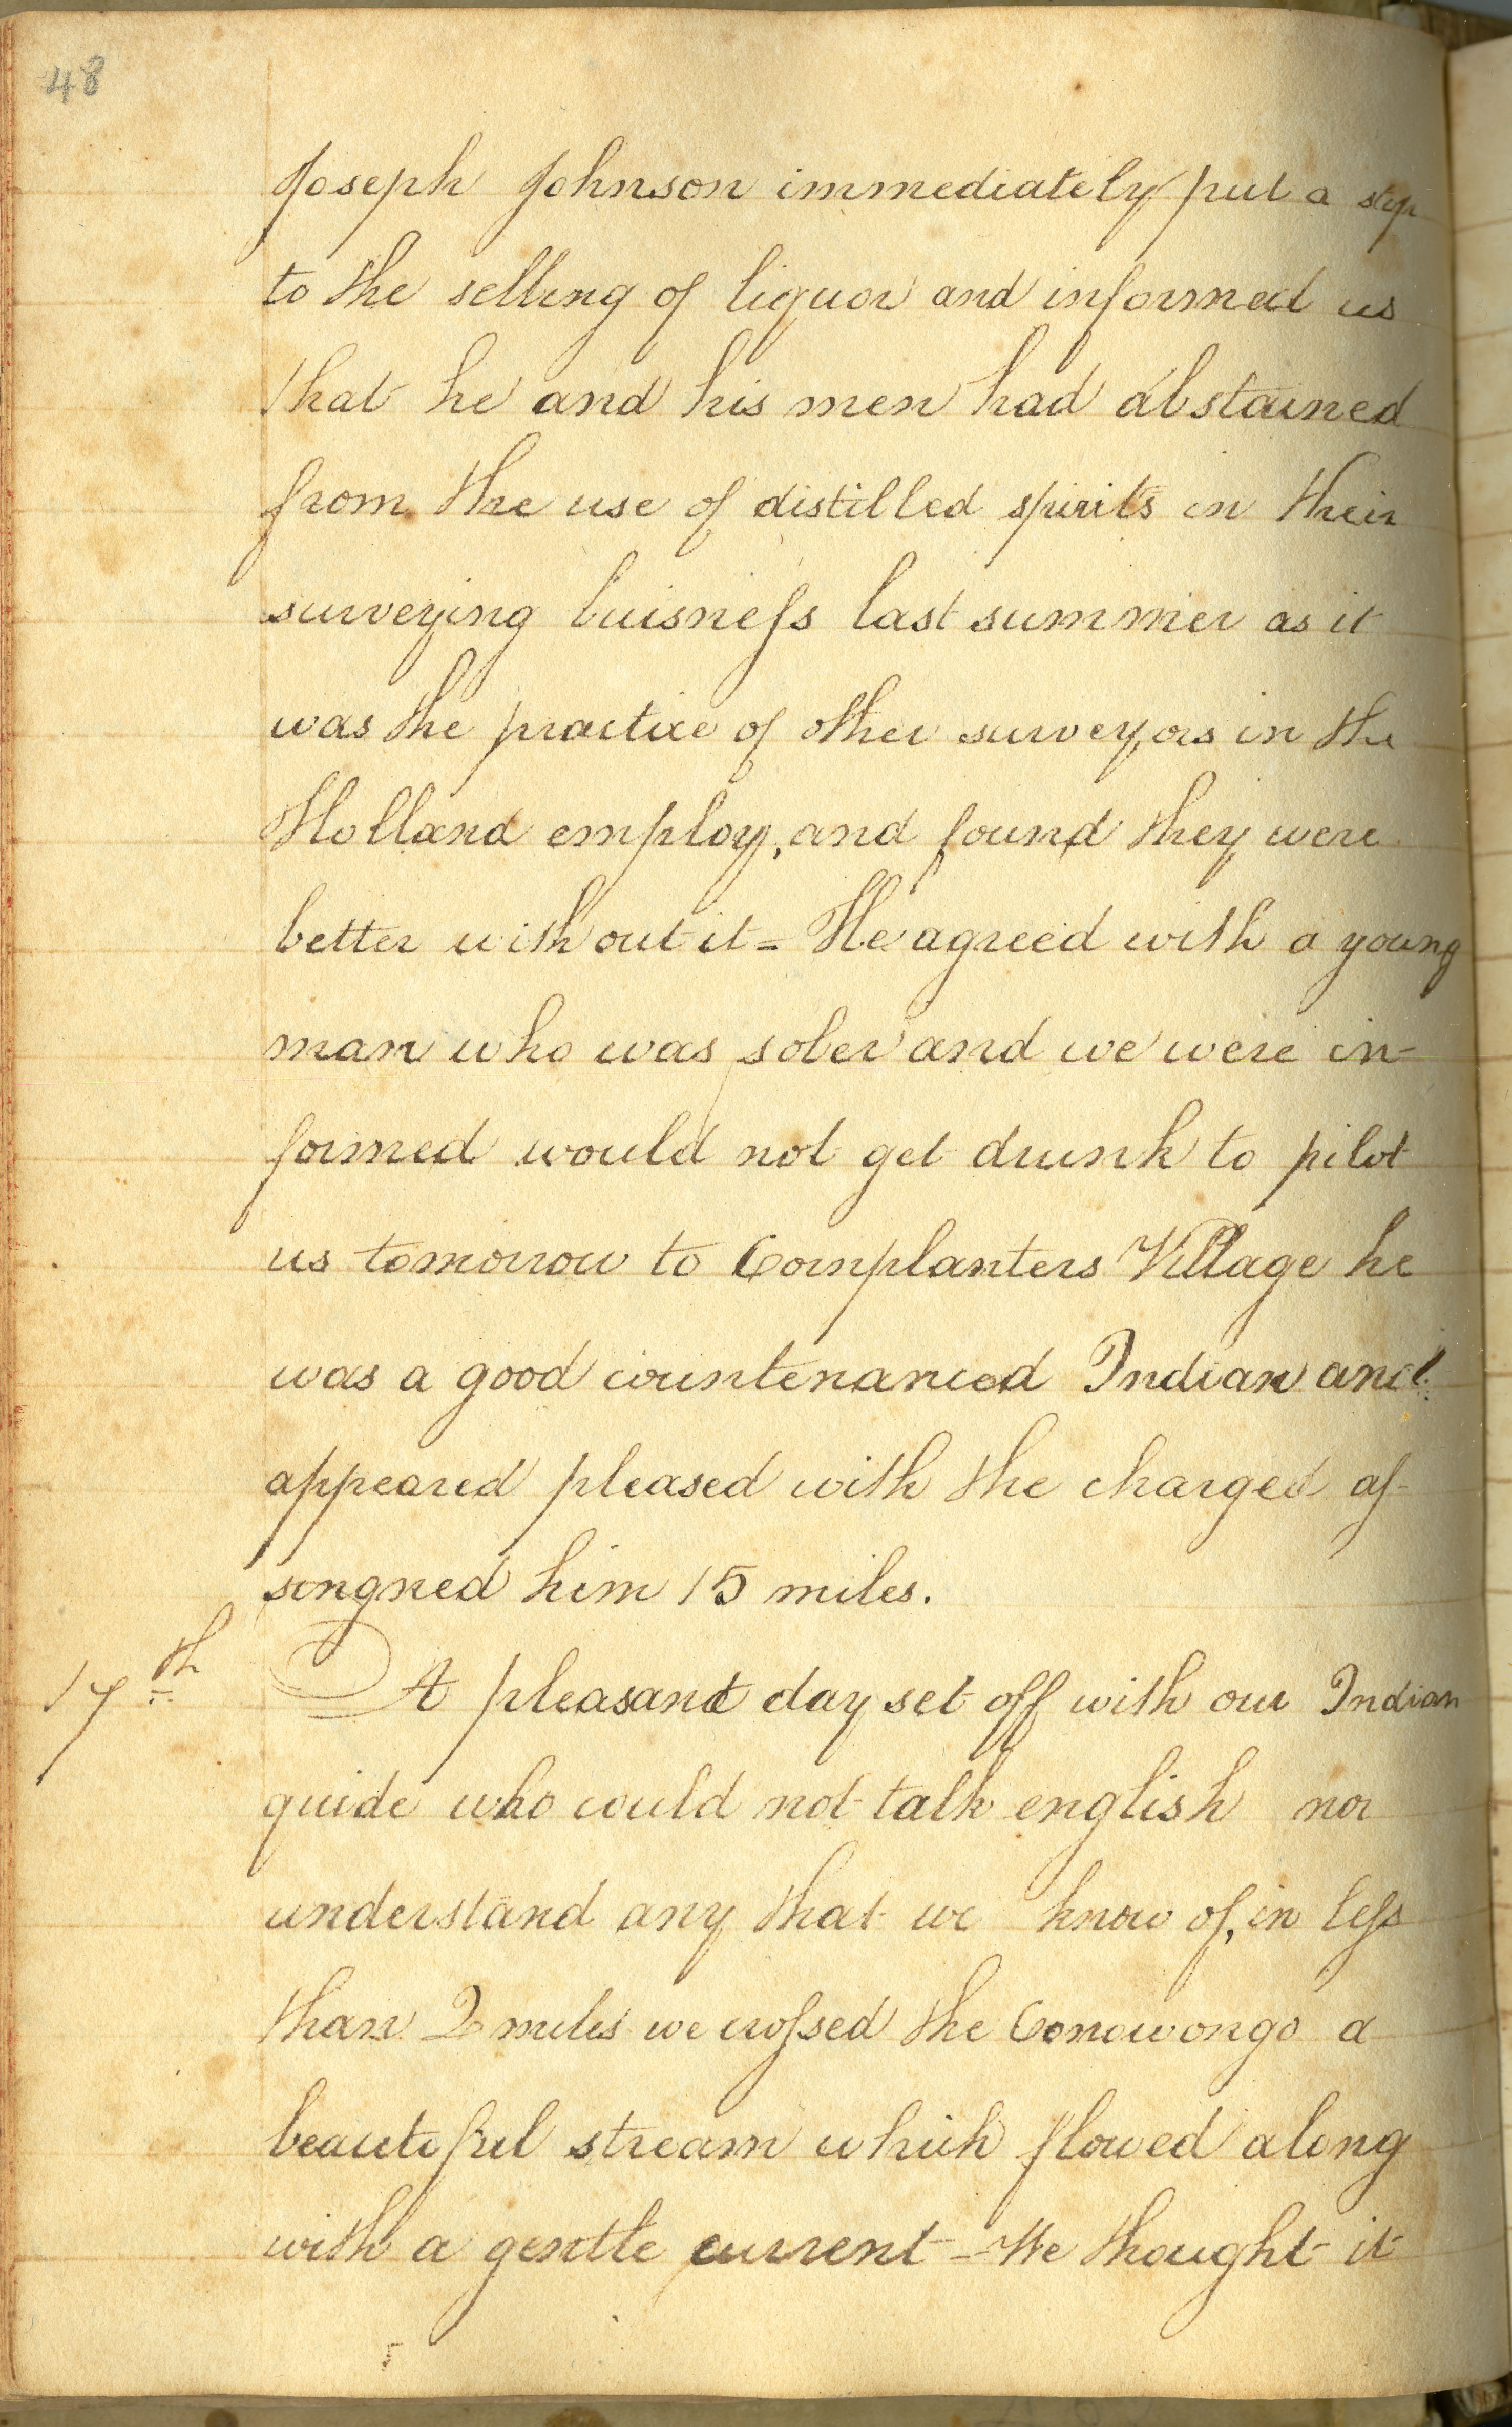 48
Joseph Johnson immediately put a stop
to the selling of liquor and informed us
that he and his men had abstained
from the use of distilled spirits in their
surveying buisneſs last summer as it
was the practice of other surveyors in the
Holland employ, and found they were
better without it = He agreed with a young
man who was sober and we were in-
formed would not get drunk to pilot
us tomorrow to Cornplanters Village he
was a good countenanced Indian and
appeared pleased with the charged aſ-
songned him 15 miles.
17th A pleasant day set off with our Indian
guide who could not talk english nor
understand any that we know of, in leſs
than 2 miles we croſsed the Conowongo a
beautiful stream which flowed along
with a gentle current - We thought it